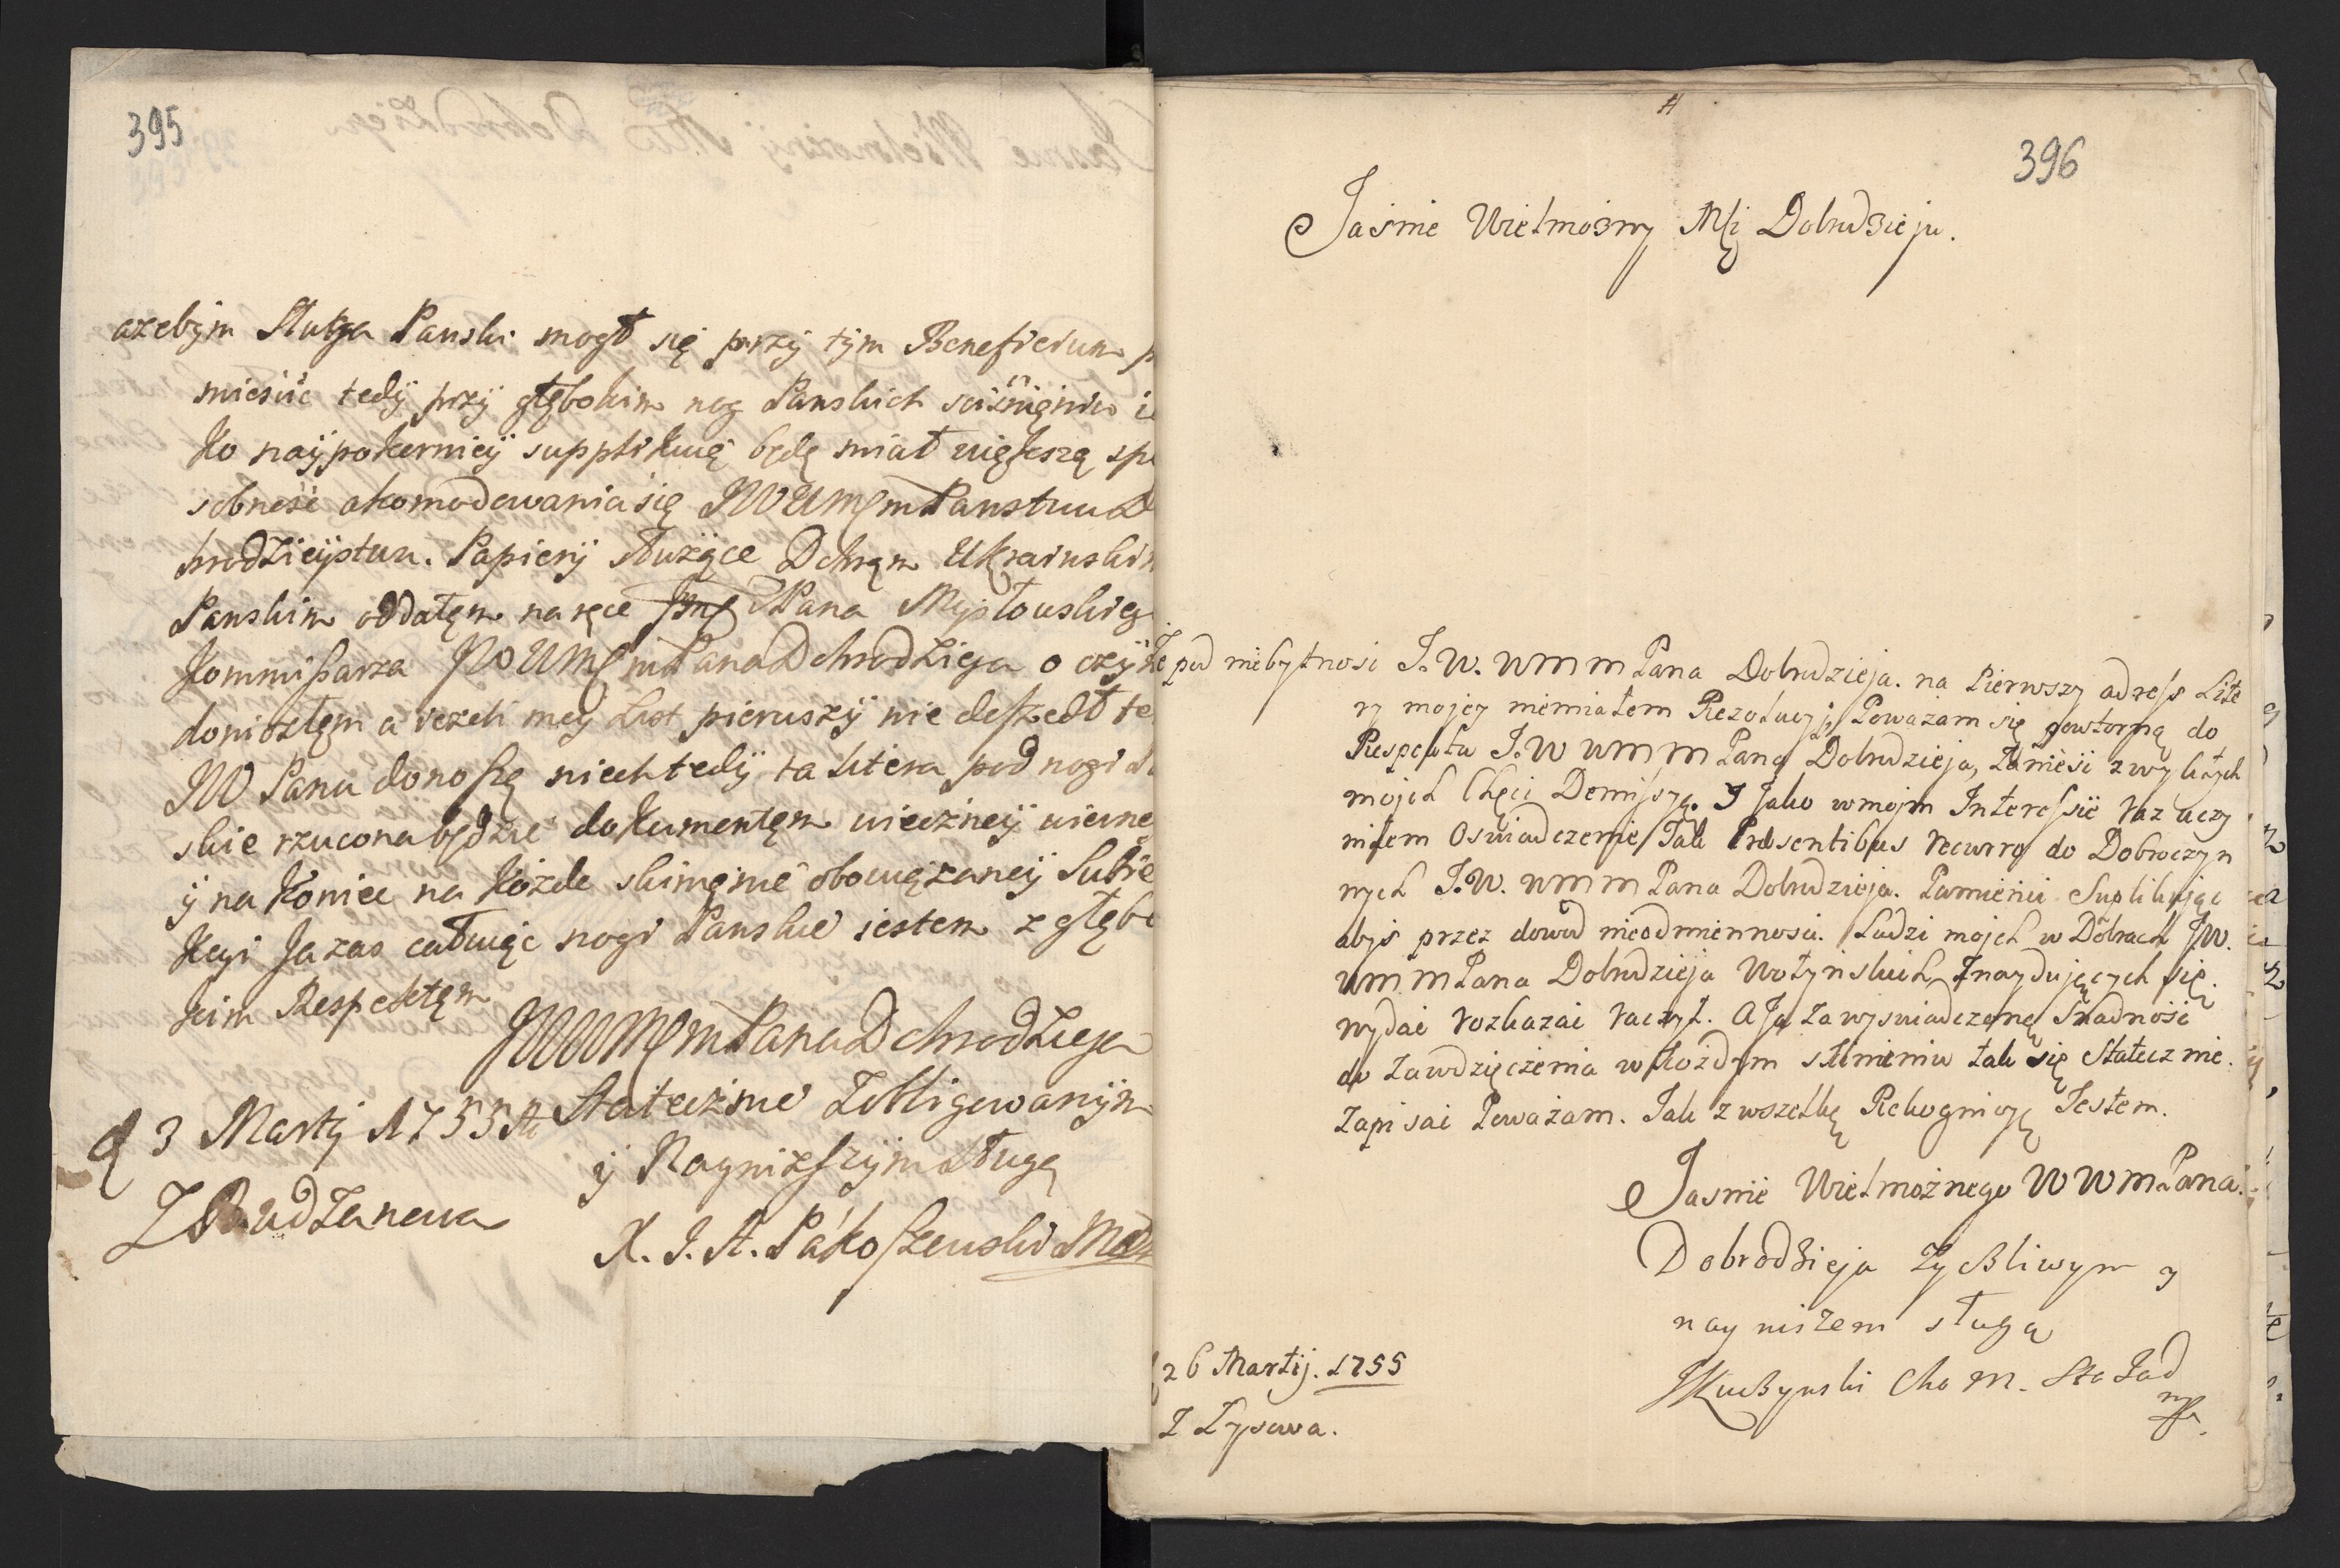 395
ażebym Sługa Panski mogł się przÿ tÿm Beneficium p
mieśćić tedÿ przÿ głębokim nog Panskich sciśnięniu i
ko naÿpokorniéÿ supplikuię będę miał większą spo
sobność akomodowania się JWUMCmPanstwu D
brodzieÿstwu. Papierÿ służące Dobrąm Ukrainskim
Panskim oddałęm na ręce JPana Mysłouskieg
Kommißarza JWUMCmPana Dobrodzieja o czÿm
doniosłęm a ieżeli moy List pierwszÿ nie doszedł te
JW Panu donoszę niech tedÿ ta Litera pod nogi Pa
skie rzucona będzie dokumentęm wiecznéÿ wierne
ÿ na koniec na każde skinięnie obowiązanéÿ Subie
kcyi Ja zas całuięc nogi Panskie iestem z głębo
kim Respektęm
JWWMCmPana Dobrodzieja
Statecznie Zobligowanÿm
ÿ Nayniższÿm Sługą
X. J. A. Pakoszewski
d 3 Martÿ 1755 A
Z Budzanowa
396
Jaśnie Wielmożny Mći Dobrodzieju.
Że pod niebytnosc J.W. WMM Pana Dobrodzieja. na Pierwszy adress Lite
ry mojey niemiałem Rezolucyi, Poważam się powtorną do
Respektu J.W WMM Pana Dobrodzieja, Zaniesc zwykłych
mojch Chęci Demissyą. I Jako w mojm Interessie raz uczy
niłem Oswiadczenie Tak Præsentibus recurro do Dobroczyn
nych J.W. WMM Pana Dobrodzieja. Pamienci Suplikując
abyś przez dowod nieodmiennosci. Ludzi mojch w Dobrach JW.
WMM Pana Dobrodzieja Wołyńskich Znaydujących się.
wydać rozkazać raczył. A Ja za wyswiadczoną Snadność
do zawdzięczenia w każdym skinieniu tak się Statecznie.
Zapisać Poważam. Jak z wszelką Rekognicyą Jestem.
Jasnie Wielmożnego WWMPana
Dobrodzieja Zyczliwym y
nayniszem sługą
JKuczynski Cho M. Sta Pod
mp.
d 26 Martij. 1755
Z Łysowa.